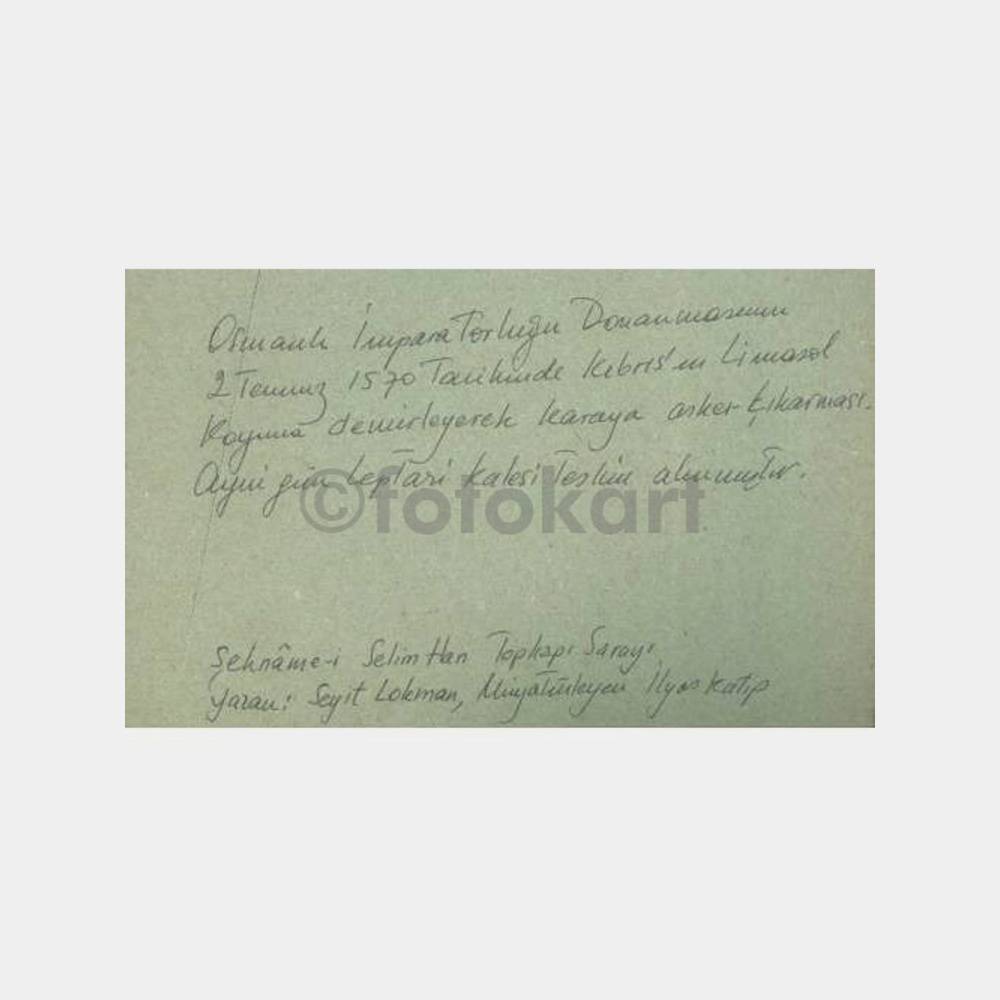 Osmanlı İmparatorluğu Donanmasının
2 Temmuz 1570 Tarihinde Kıbrıs'ın Limasol
Koyuna demirleyerek karaya asker çıkarması.
Ayni gün Leptari Kalesi Teslim alınmıştır.
©fotokart
Şehnâme-i Selim Han Topkapı Sarayı
Yazan: Seyit Lokman, Minyatürleyen İlyas Katip